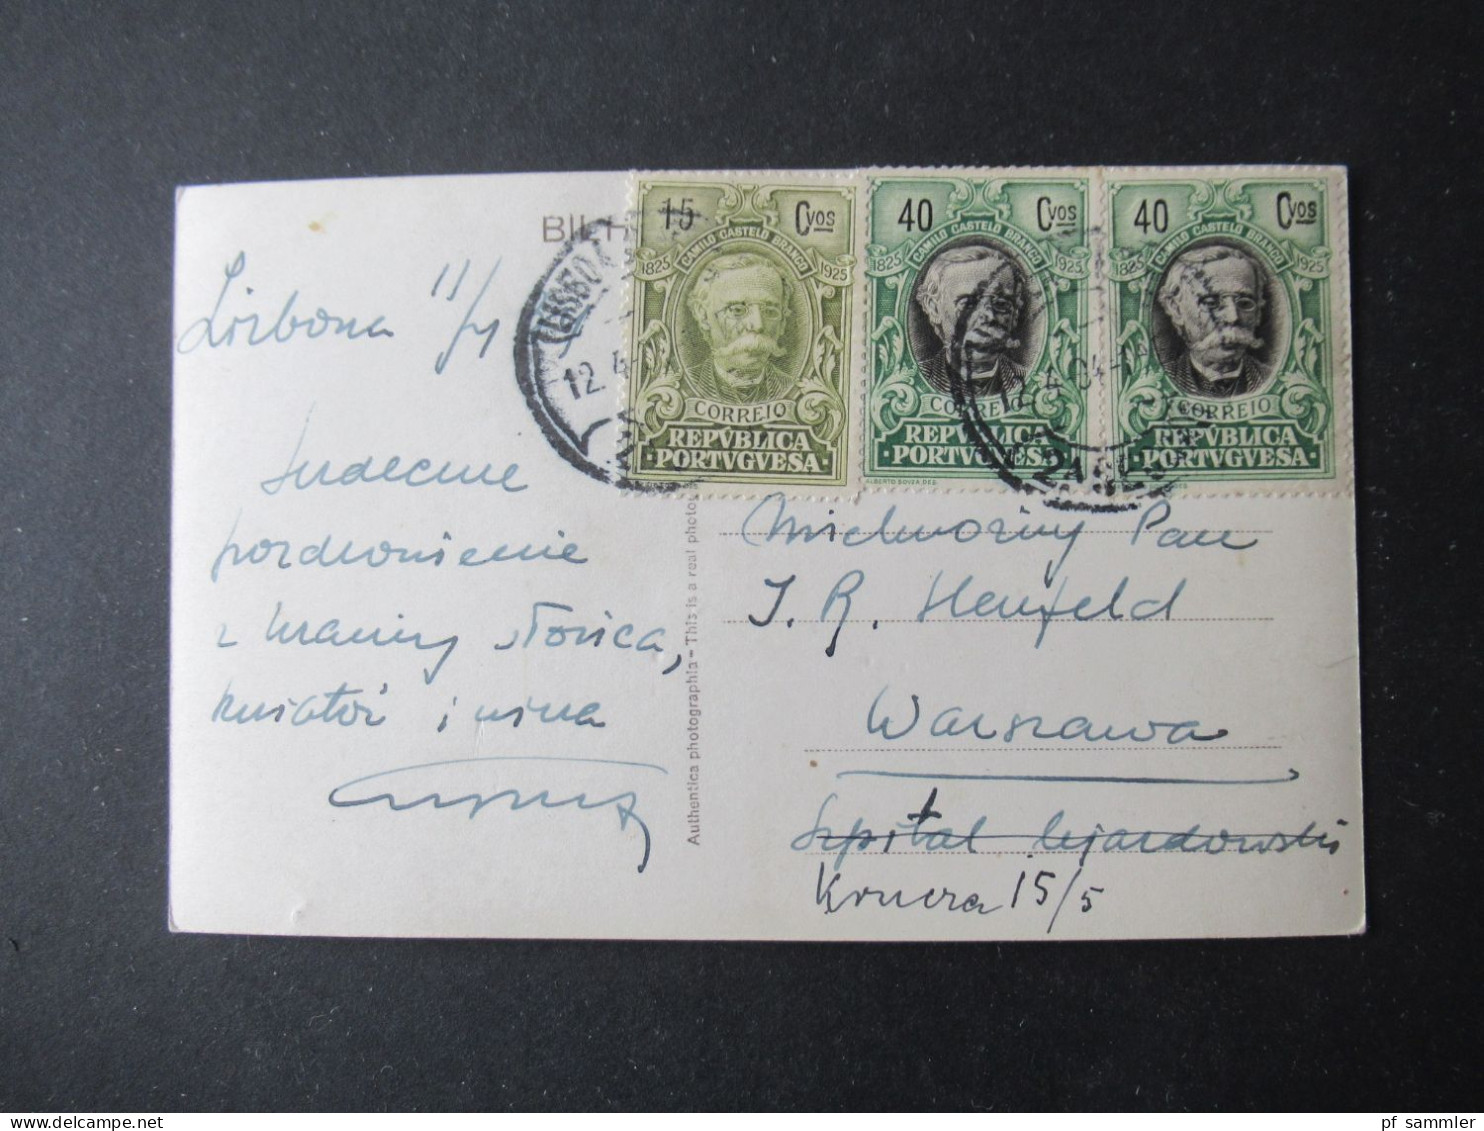 BILH
15 Cvos
CAMILO CASTELO BRANCO
1825 1925
CORREIO
REPVBLICA
PORTVGVESA
40 Cvos
CAMILO CASTELO BRANCO
1825 1925
CORREIO
REPVBLICA
PORTVGVESA
ALBERTO SOUZA DES.
40 Cvos
CAMILO CASTELO BRANCO
1825 1925
CORREIO
REPVBLICA
PORTVGVESA
LISBOA
12.4
12.4
2A SEC
Lizbona 11/4
Serdeczne
pozdrowienie
z krainy słońca,
kwiatów i wina
Authentica photographia - This is a real photog
Wielmożny Pan
J. R. Henfeld
Warszawa
Szpital Ujazdowski
Krucza 15/5
pf_sammler